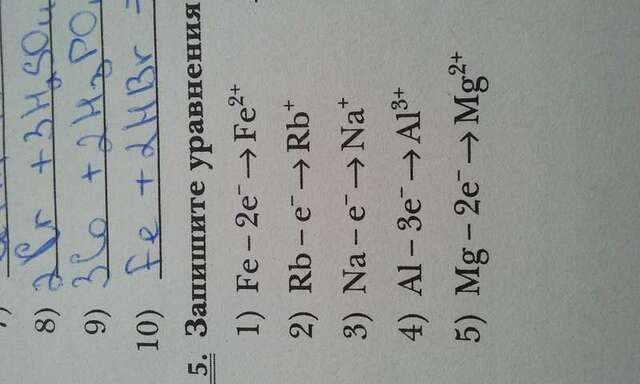 8) 2Cr + 3H₂SO₄
9) 3Co + 2H₃PO₄
10) Fe + 2HBr =
5. Запишите уравнения
1) Fe – 2e⁻ → Fe²⁺
2) Rb – e⁻ → Rb⁺
3) Na – e⁻ → Na⁺
4) Al – 3e⁻ → Al³⁺
5) Mg – 2e⁻ → Mg²⁺